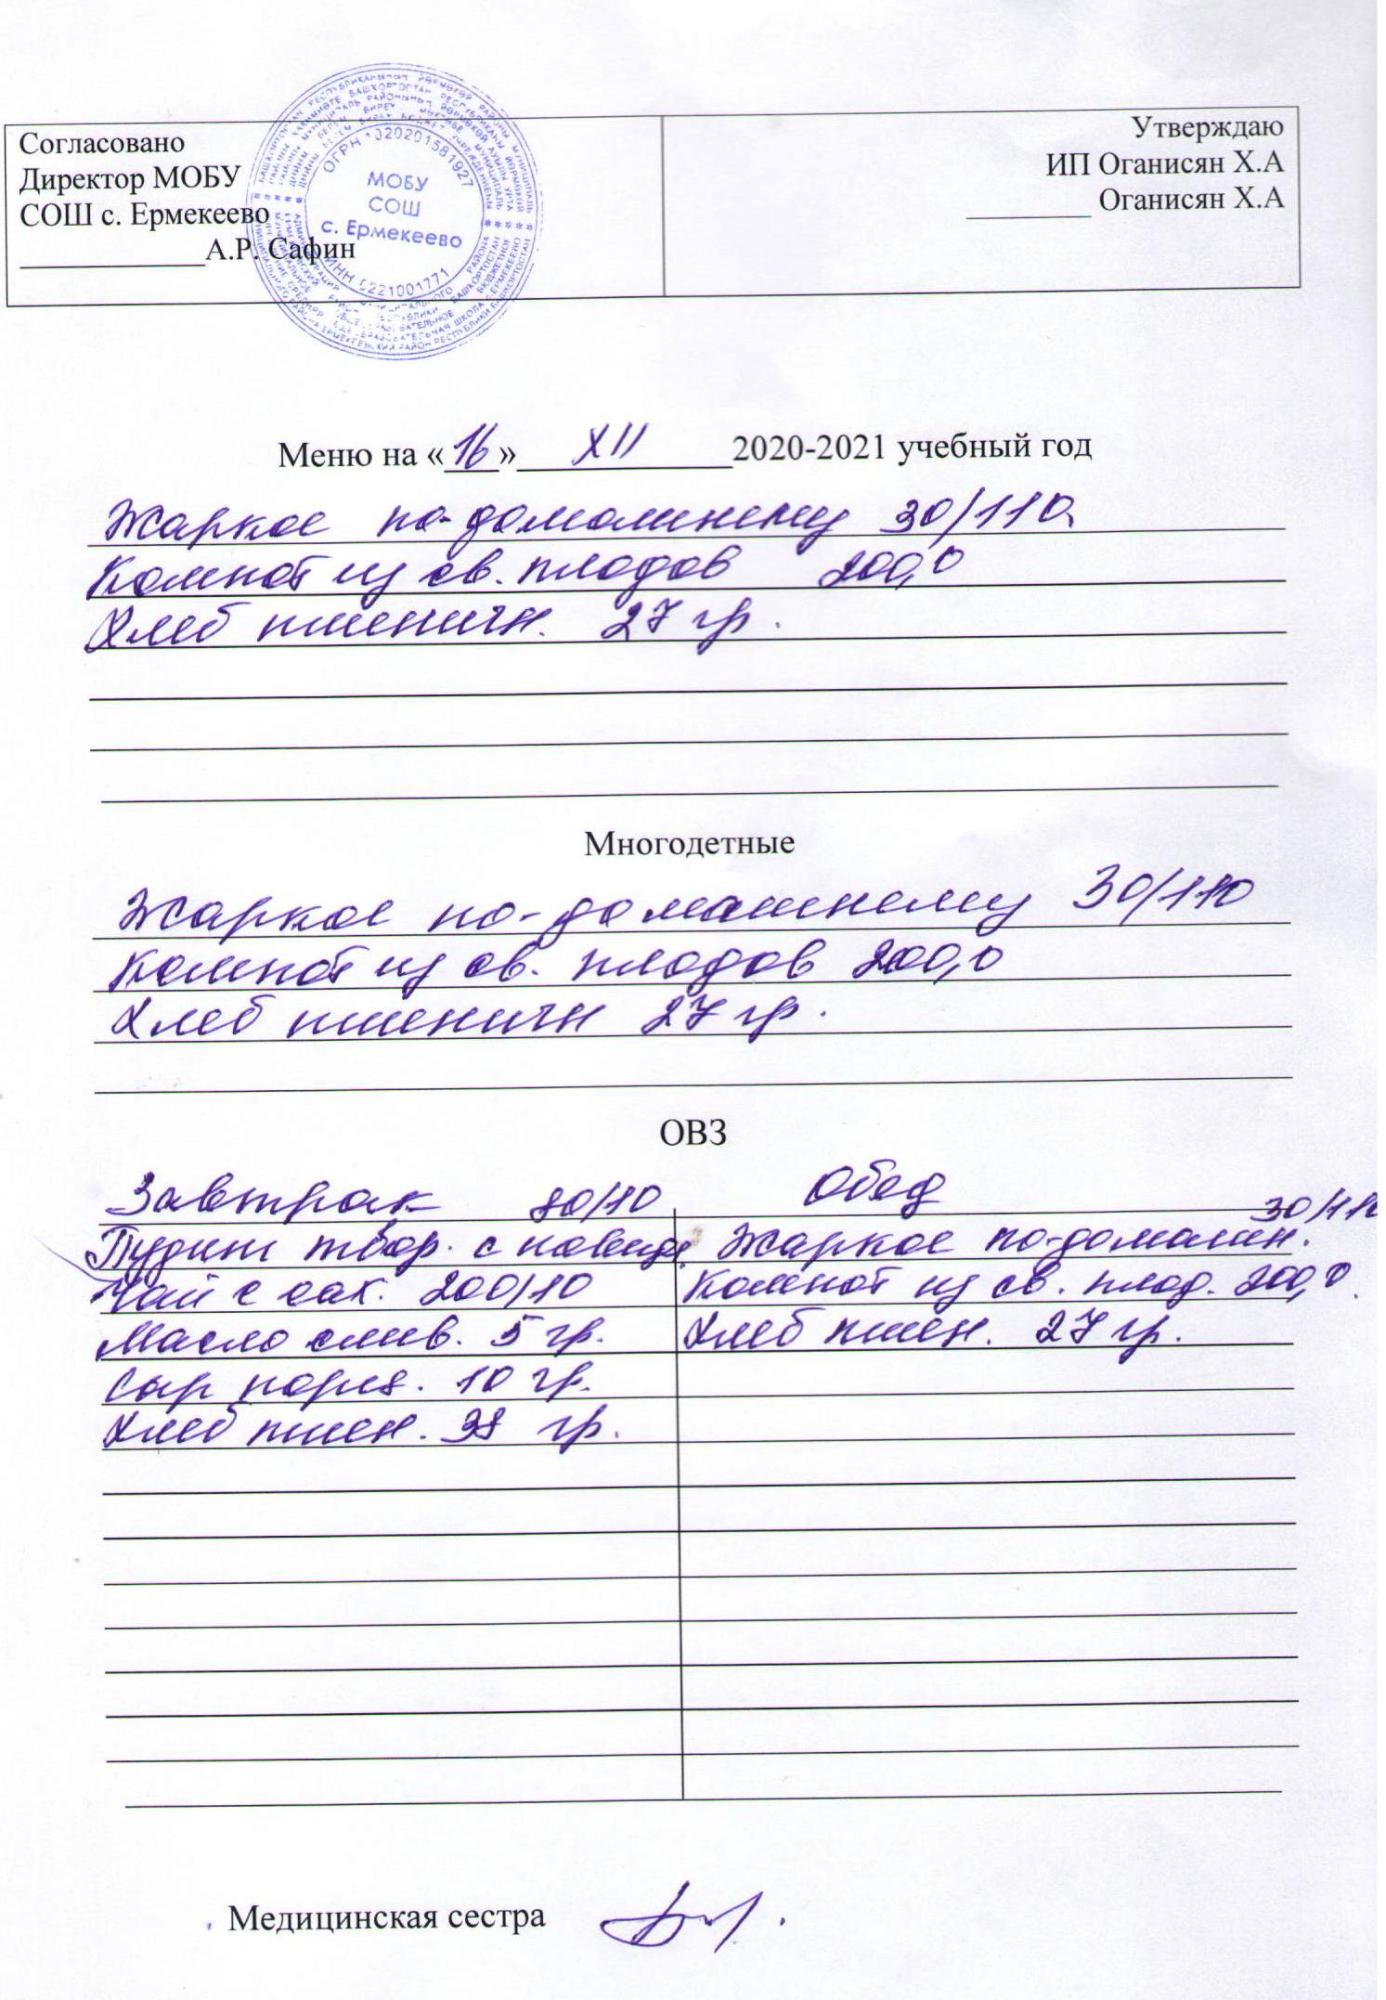 Согласовано
Директор МОБУ
СОШ с. Ермекеево
_____________А.Р. Сафин
Утверждаю
ИП Оганисян Х.А
_________ Оганисян Х.А
ОГРН 1020201581927
МОБУ
СОШ
с. Ермекеево
ИНН 0221001771
Меню на «16» XII 2020-2021 учебный год
Жаркое по-домашнему 30/110
Компот из св. плодов 200,0
Хлеб пшеничн. 27 гр.
Многодетные
Жаркое по-домашнему 30/110
Компот из св. плодов 200,0
Хлеб пшеничн 27 гр.
ОВЗ
Завтрак 80/10
Пудинг твор. с повидл.
Чай с сах. 200/10
Масло слив. 5 гр.
Сыр порц. 10 гр.
Хлеб пшен. 38 гр.
Обед
30/110
Жаркое по-домашн.
Компот из св. плод. 200,0
Хлеб пшен. 27 гр.
Медицинская сестра